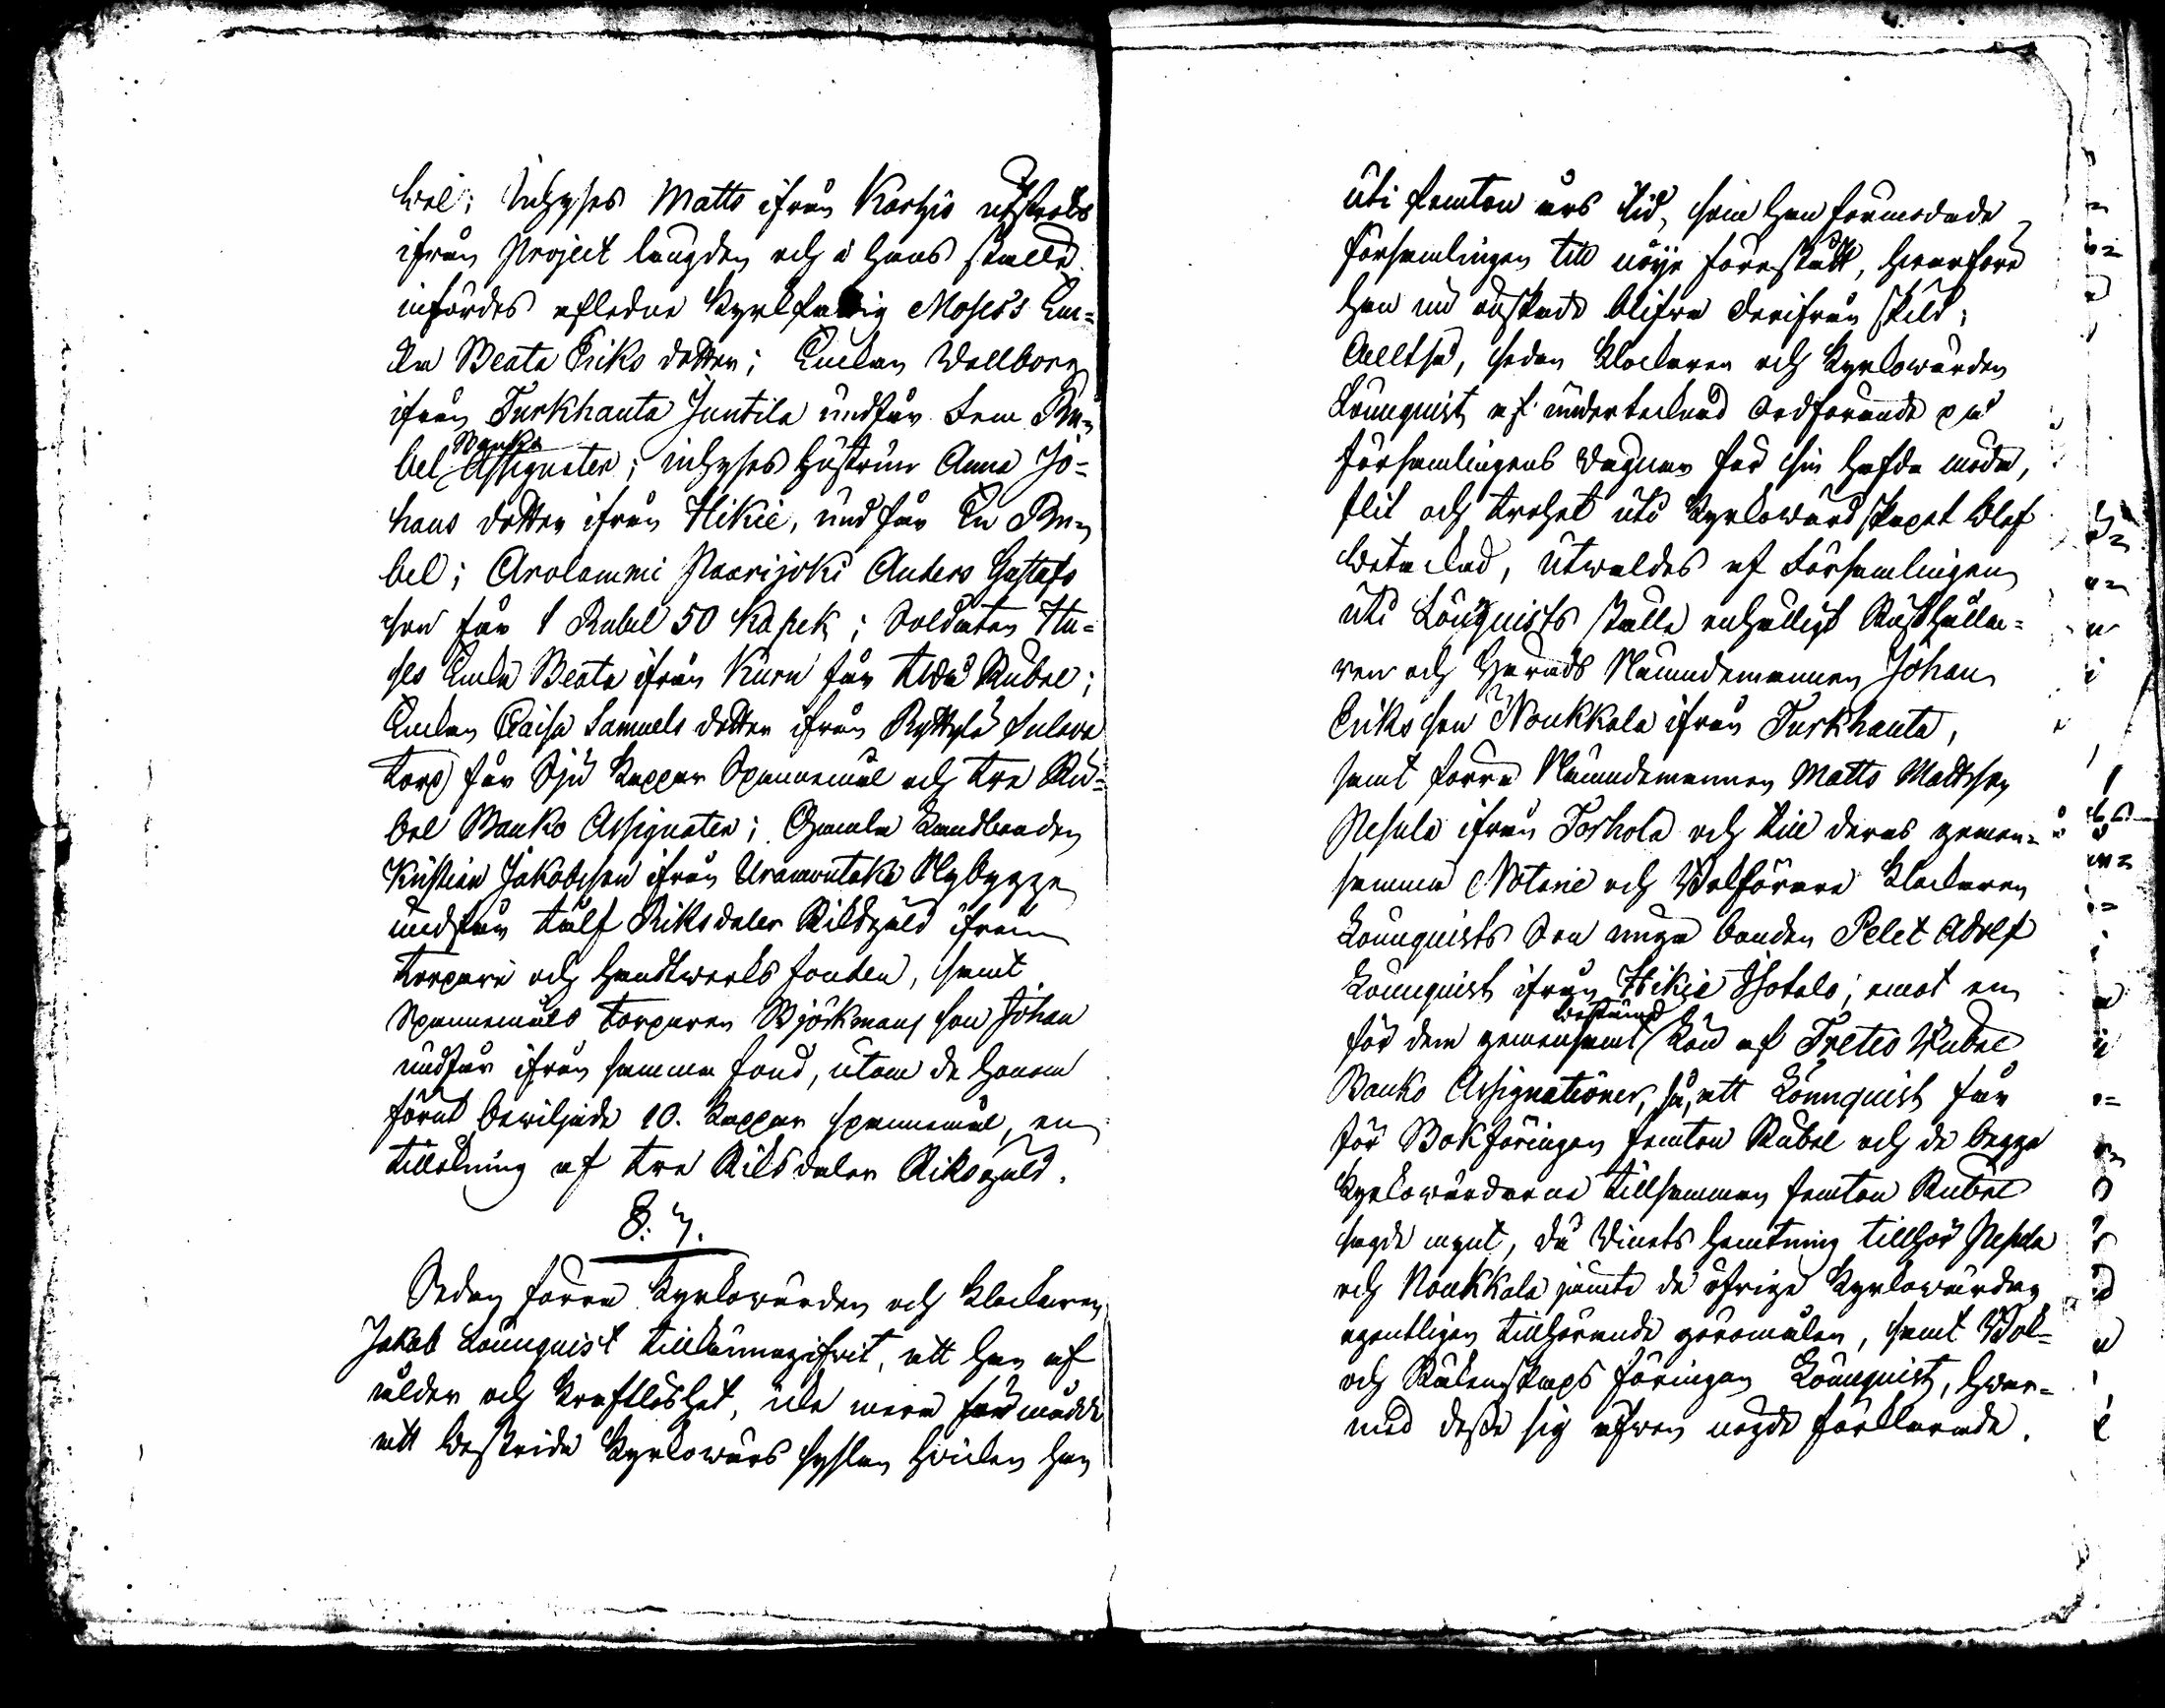 bel; Inhyses Matts ifrån Karhis utströks
ifrån Project längden och i hans ställe
infördes afledne Kyrkfattig Moses's En-
ka Beata Eriks dotter; Enkan Wallborg
ifrån Turkhauta Juntila undfår Fem Ru-
bel Banko Assignater; inhyses hustrun Anna Jo-
hans dotter ifrån Hikie, undfår En Ru-
bel; Arolammi Paarijoki Anders Gustafs
son får 1 Rubel 50 Kopek; Soldaten Ha-
ses Enka Beata ifrån Kuru får två Rubel;
Enkan Caisa Samuels dotter ifrån Ryttylä Sulava
torp får Sju Kappar Spannemål och tre Ru-
bel Banko Assignater; Gamla Landbonden
Kristian Jakobsson ifrån Uramontaka Nybygge
undfår tolf Riksdaler Riksgäld ifrån
torpare och handtwerks fonden, samt
Spannemåls torparen Björkmans son Johan
undfår ifrån samma fond, utom de honom
förut beviljade 10. Kappar spannemål, en
tillökning af tre Riksdaler Riksgäld.
§. 7.
Sedan förra Kyrkowärden och Klockaren
Jakob Lönnquist tillkännagifvit, att han af
ålder och kraftlöshet, icke mera förmådde
att bestrida Kyrkowärds syslan hvilken han
uti femton års tid, som han förmodade
församlingen till nöje förestått, hvarföre
han nu önskade blifva derifrån skild;
Alltså, sedan Klockaren och Kyrkowärden
Lönnquist af undertecknad Ordförande på
församlingens vägnar för sin hafda möda,
flit och trohet uti Kyrkowärdskapet blef
betackad, utwaldes af Församlingen
uti Lönnquists ställe enhälligt Rusthålla-
ren och Härads Nämndemannen Johan
Eriks son Noukkala ifrån Turkhauta,
samt förra Nämndemannen Matts Mattsson
Nesula ifrån Torhola och till deras gemen-
samma Notarie och Bokförare Klockaren
Lönnquists Son unga bonden Adolf
Lönnquist ifrån Hikie Isotalo; emot en
för dem gemensamt bestämd lön af Tretio Rubel
Banko Assignationer, så, att Lönnquist får
för Bokföringen femton Rubel och de begge
Kyrkowärdarne tillsamman femton Rubel
sagde mynt, då Vinets hemtning tillhör Nesula
och Noukkala jämte de öfriga Kyrkowärden
egentligen tillhörande göromålen, samt Bok-
och Räkenskaps föringen Lönnquist, hvar-
med desse sig äfven nögde förklarade.